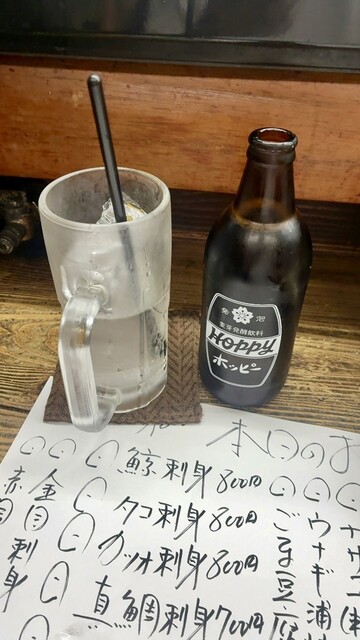 発泡
麦芽発酵飲料
HOPPY
ホッピー
本日のお
鯨刺身 800円
タコ刺身 800円
カツオ刺身 800円
真鯛刺身 700円
赤
金目
刺身
ウナギ
ごま豆腐